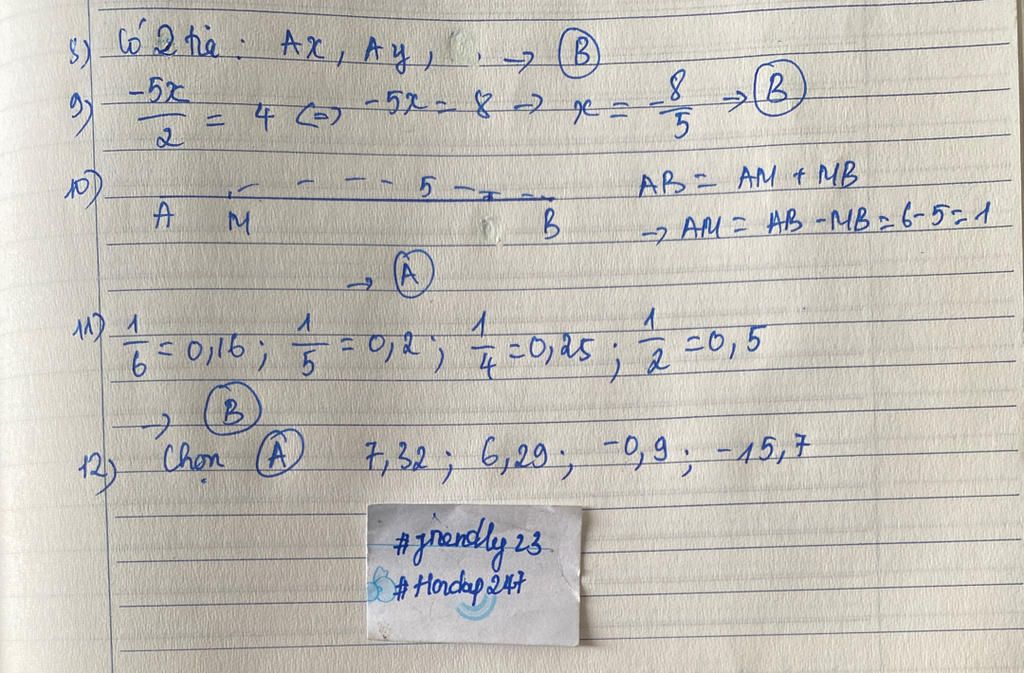 8) Có 2 tia: Ax, Ay, . → B
9) -5x/2 = 4 <=> -5x = 8 → x = -8/5 → B
10) 5 AB = AM + MB
A M B → AM = AB - MB = 6-5=1
→ A
11) 1/6 = 0,16; 1/5 = 0,2; 1/4 = 0,25; 1/2 = 0,5
→ B
12) Chọn A 7,32; 6,29; -0,9; -15,7
#friendly23
#Hoidap247